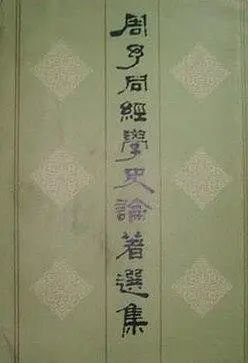 周予同經學史論著選集